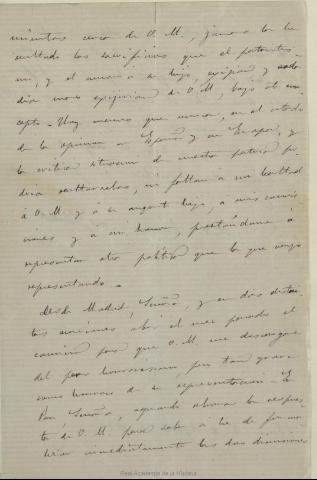 mientras cerca de V. M., jamas he
ocultado los sacrificios que el patriotis-
mo, y el amor a su hijo, exigian y cada
dia mas exigirian de V. M., bajo ese con-
cepto. Hoy menos que nunca, en el estado
de la opinion en España y en Europa, y
la critica situacion de nuestra patria po-
dria ocultarselos, sin faltar á mi lealtad
á V. M. y á su augusto hijo, á mis convic-
ciones y á mi honor, prestándome á
representar otra política que la que vengo
representando.
Desde Madrid, Señora, y en dos distin-
tas ocasiones abrí el mes pasado el
camino para que V. M. me descargase
del peso
para tan grave
como honrosa de su representacion.
Por Señora, aguardo ahora la respues-
ta de V. M. para saber si he de
inmediatamente las dos dimisiones
Real Academia de la Historia